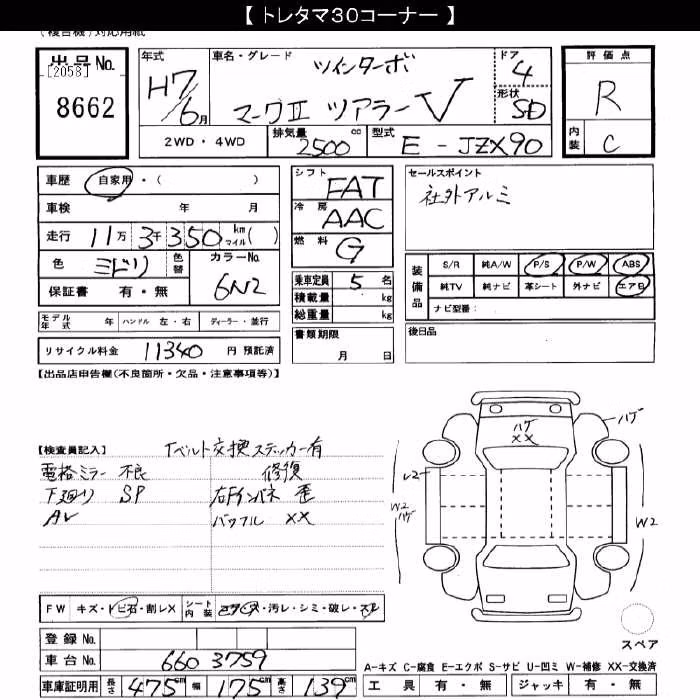 【 トレタマ30コーナー 】
(複合機)対応用紙
出品No.
[2058]
8662
年式
H7/6月
車名・グレード
ツインターボ
マークⅡ ツアラーV
ドア
4
形状
SD
評価点
R
内装
C
2WD・4WD
排気量
2500cc
型式
E-JZX90
車歴 自家用・( )
車検 年 月
走行 11万3千350 km マイル( )
色 ミドリ 色替
カラーNo.
6N2
保証書 有・無
シフト
FAT
冷房
AAC
燃料
G
乗車定員 5名
積載量 kg
総重量 kg
書類期限
月 日
セールスポイント
社外アルミ
装備品
S/R 純A/W P/S P/W ABS
純TV 純ナビ 革シート 外ナビ エアB
ナビ型番:
後日品
モデル年式 年 ハンドル 左・右 ディーラー・並行
リサイクル料金 11340 円 預託済
【出品店申告欄(不良箇所・欠品・注意事項等)】
【検査員記入】 Tベルト交換ステッカー有
電格ミラー 不良 修復
下廻り SP 右Fインパネ 歪
AV バックル XX
ハゲ
XX
ハゲ
W2
ハゲ
W2
FW キズ・トビ石・割レX シート内装 コゲ穴・汚レ・シミ・破レ・スレ
登録No.
車台No. 660 3759
車庫証明用 長さ 475cm 幅 175cm 高さ 139cm
スペア
A-キズ C-腐食 E-エクボ S-サビ U-凹ミ W-補修 XX-交換済
工具 有・無 ジャッキ 有・無